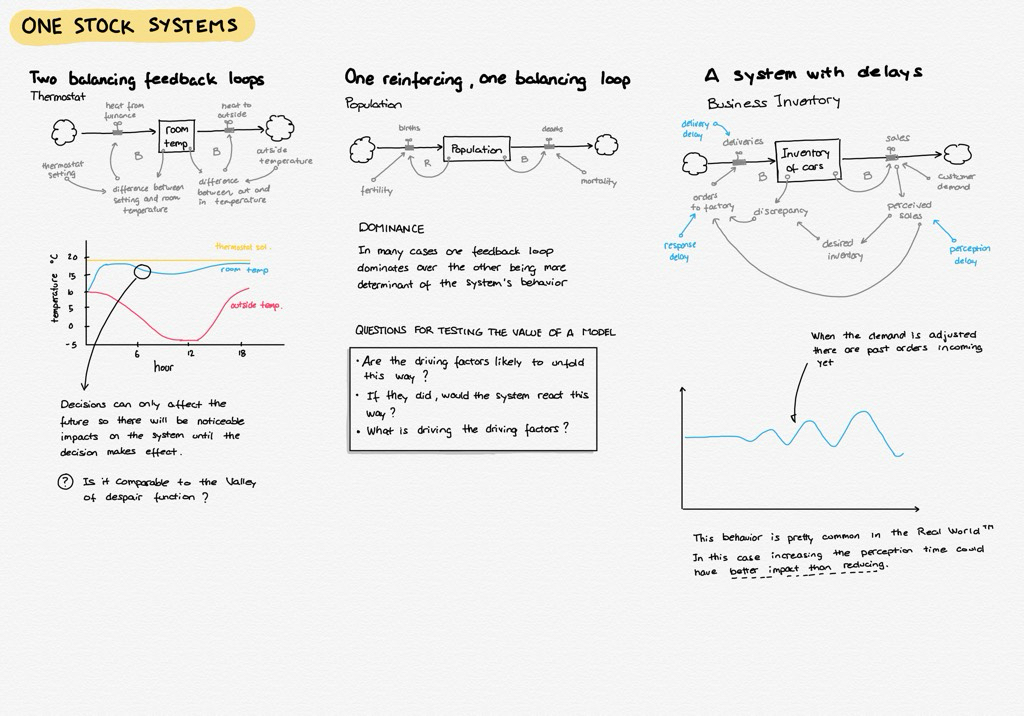 ONE STOCK SYSTEMS
Two balancing feedback loops
Thermostat
heat from
furnance
heat to
outside
room
temp
B
B
thermostat
setting
outside
temperature
difference between
setting and room
temperature
difference
between out and
in temperature
temperature °C
20
15
10
5
0
-5
thermostat set.
room temp
outside temp.
6
12
18
hour
Decisions can only affect the
future so there will be noticeable
impacts on the system until the
decision makes effect.
? Is it comparable to the Valley
of despair function?
One reinforcing, one balancing loop
Population
births
deaths
Population
R
B
fertility
mortality
DOMINANCE
In many cases one feedback loop
dominates over the other being more
determinant of the system's behavior
QUESTIONS FOR TESTING THE VALUE OF A MODEL
• Are the driving factors likely to unfold
this way?
• If they did, would the system react this
way?
• What is driving the driving factors?
A system with delays
Business Inventory
delivery
delay
deliveries
sales
Inventory
of cars
B
B
customer
demand
orders
to factory
discrepancy
perceived
sales
response
delay
desired
inventory
perception
delay
When the demand is adjusted
there are past orders incoming
yet
This behavior is pretty common in the Real World™
In this case increasing the perception time could
have better impact than reducing.